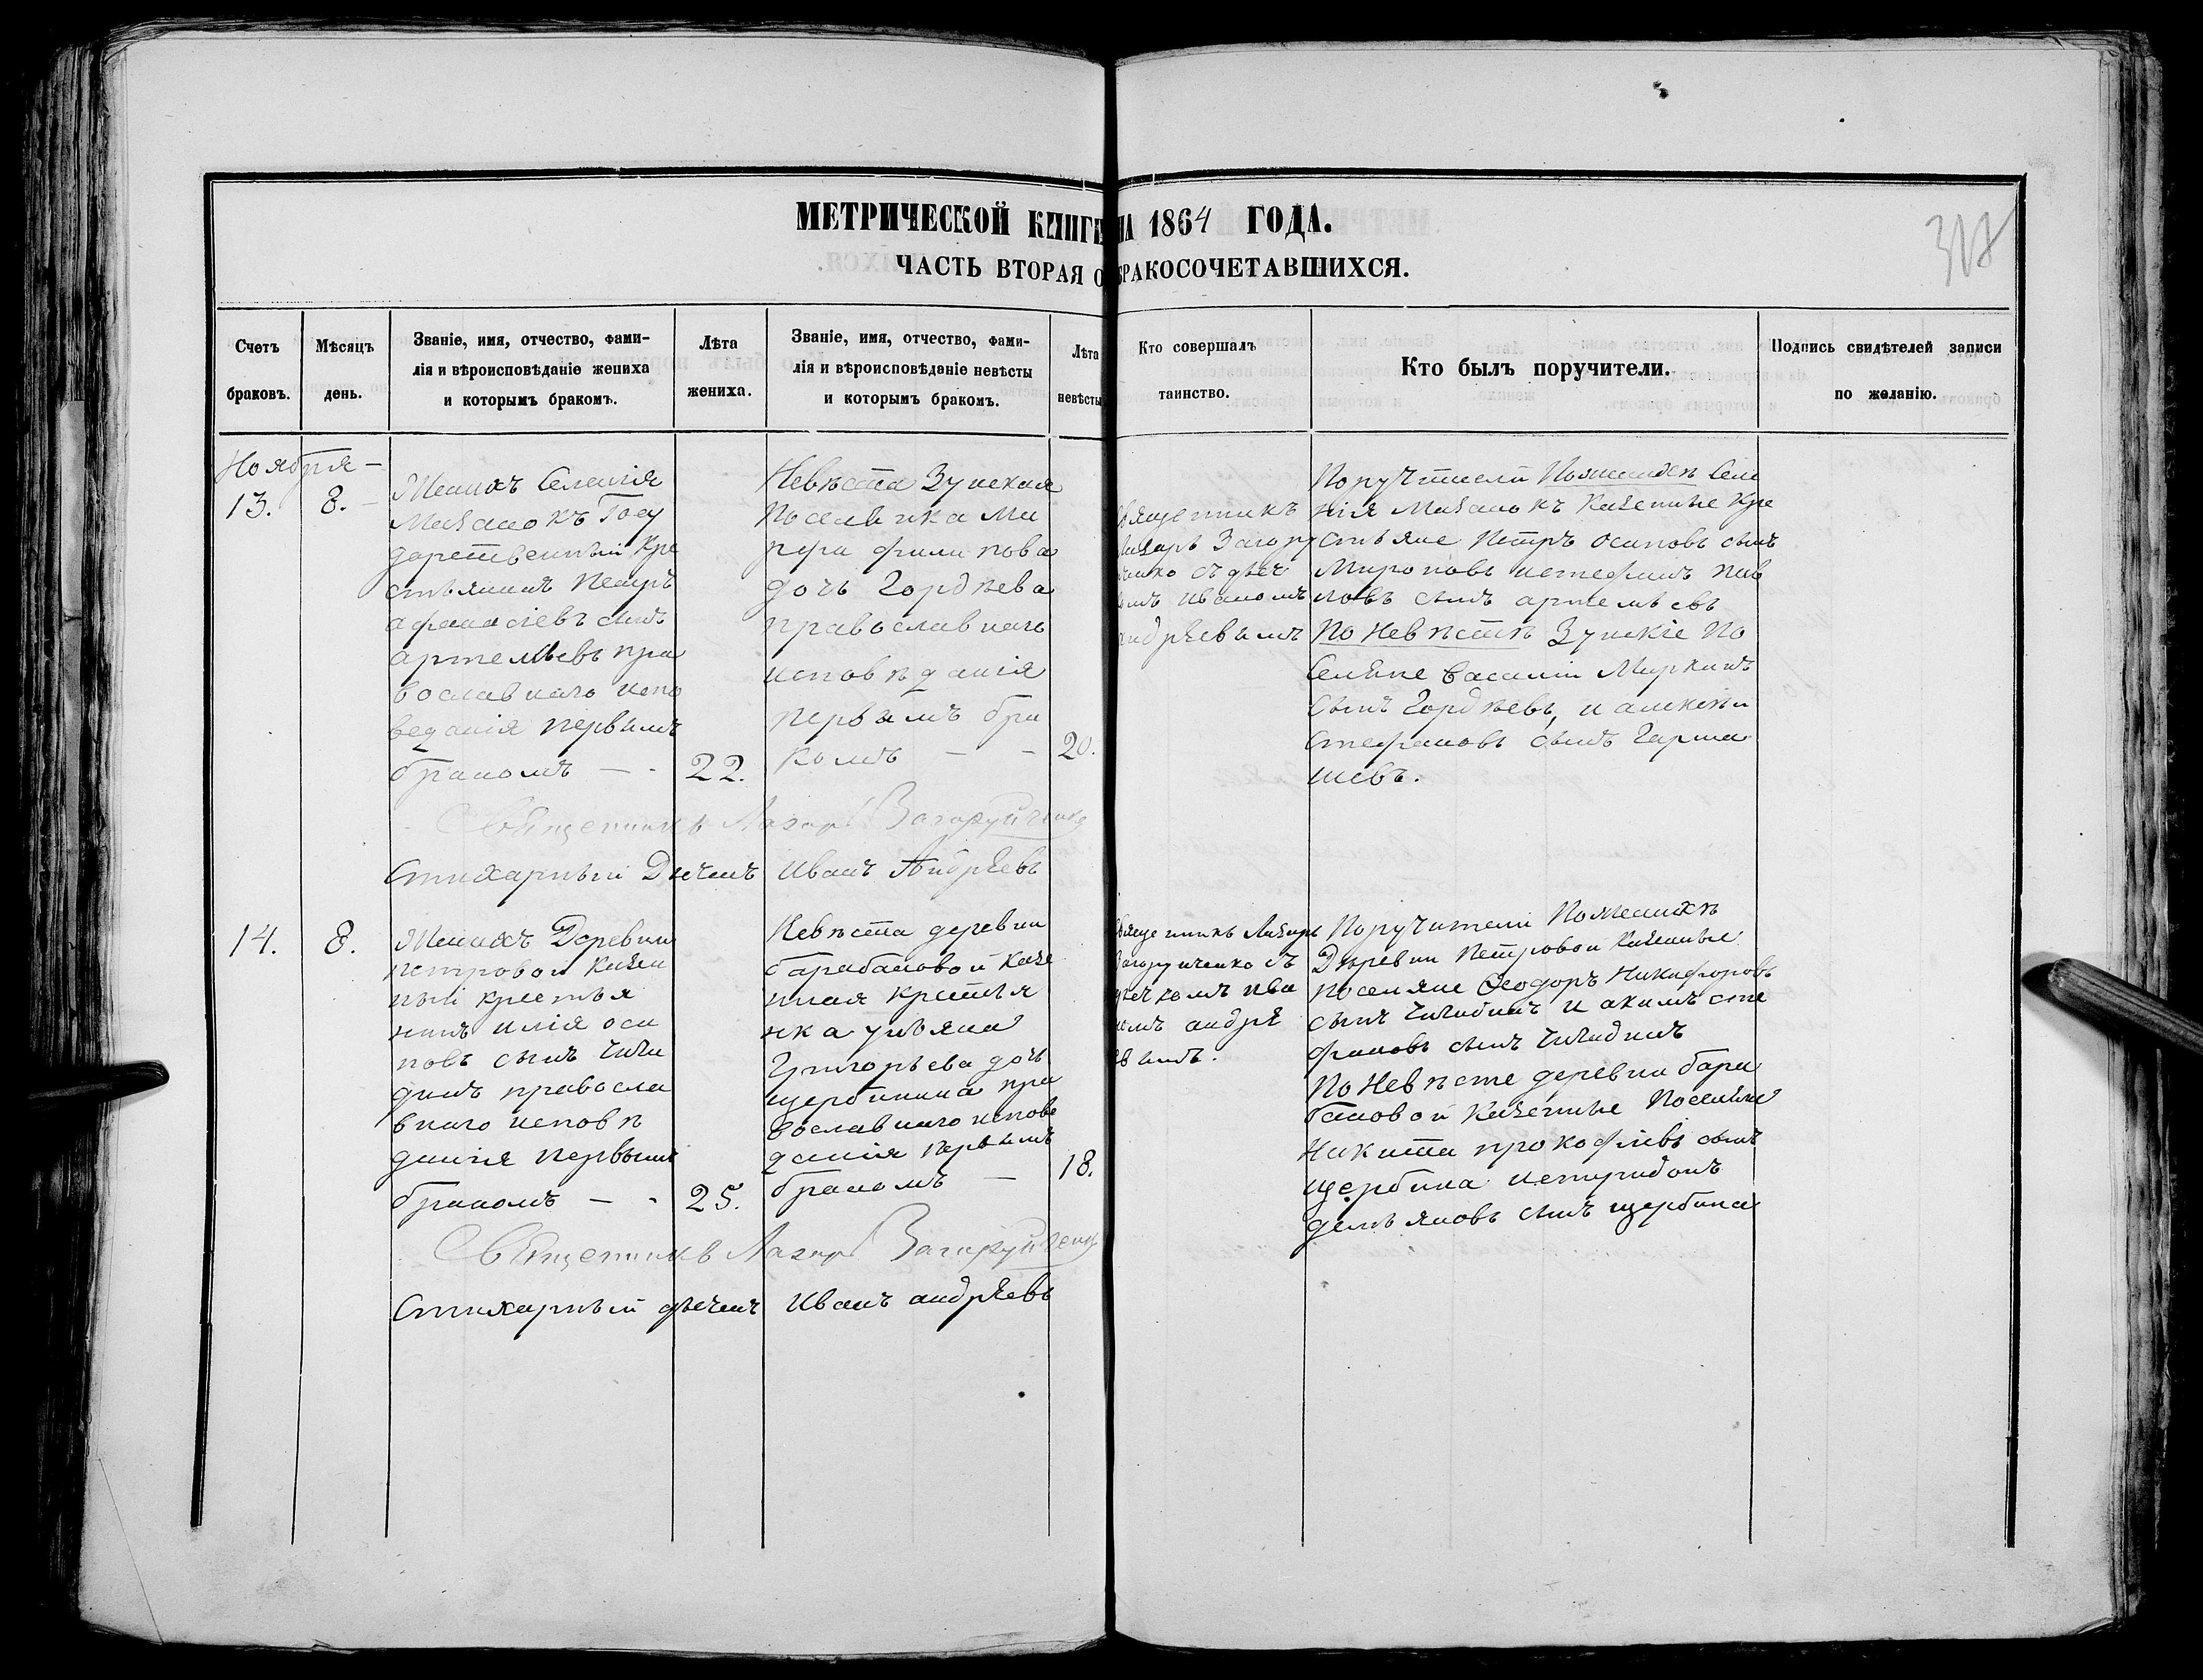 МЕТРИЧЕСКОЙ КНИГИ НА 1864 ГОДА.
ЧАСТЬ ВТОРАЯ О БРАКОСОЧЕТАВШИХСЯ.
Счетъ
браковъ.
Мѣсяцъ
день.
Званіе, имя, отчество, фами-
лія и вѣроисповѣданіе жениха
и которымъ бракомъ.
Лѣта
жениха.
Званіе, имя, отчество, фами-
лія и вѣроисповѣданіе невѣсты
и которымъ бракомъ.
Лѣта
невѣсты
Кто совершалъ
таинство.
Кто былъ поручители.
Подпись свидѣтелей записи
по желанію.
Ноября —
13.
8. —
Женихъ Селенія
Госу
дарственный Кре
стьянинъ Петръ
афанасіевъ сынъ
артемьевъ пра
вославнаго испо
веданія первымъ
бракомъ — -
22.
Невѣста Зуйская
Поселянка Ма
рфа филипова
дочь Гордѣева
православнаго
исповѣданія
первымъ бра
комъ — -
20.
вященникъ
Лазарь Загору
йченко съ дьяч
комъ Иваномъ
андрѣевымъ
Поручители По женихѣ Селе
нія Казенные Кре
стьяне Петръ осиповъ сынъ
Мироновъ истефанъ пав
ловъ сынъ артемьевъ
По Невѣстѣ Зуйскіе По
селяне Василій сынъ Гордѣевъ, и алексѣй
Стефановъ сынъ Гарма
шевъ.
Священникъ Лазарь Загоруйченко
Стихарный Дьячекъ Иванъ Андрѣевъ
14.
8.
Женихъ Деревни
петровой Казен
ный крестья
нинъ илія оси
повъ сынъ Чичи
динъ правосла
внаго исповѣ
данія первымъ
бракомъ — -
25.
Невѣста деревни
барабановой Казе
нная крестья
нка ульяна
Григорьева дочь
щербинина пра
вославнаго испове
данія первымъ
бракомъ —
18.
вященникъ Лазарь
Загоруйченко съ
дьячкомъ Ива
номъ андрѣ
евымъ.
Поручители По женихѣ
Деревни Петровой Казенные
поселяне Ѳеодоръ Никифоровъ
сынъ Чичидинъ и акимъ сте
фановъ сынъ Чичидинъ
По Невѣсте деревни бара
бановой Казенные Поселяне
Никита прокофіевъ сынъ
щербина испиридонъ
демьяновъ сынъ щербина
Священникъ Лазарь Загоруйченко
Стихарный дьячекъ Иванъ андрѣевъ